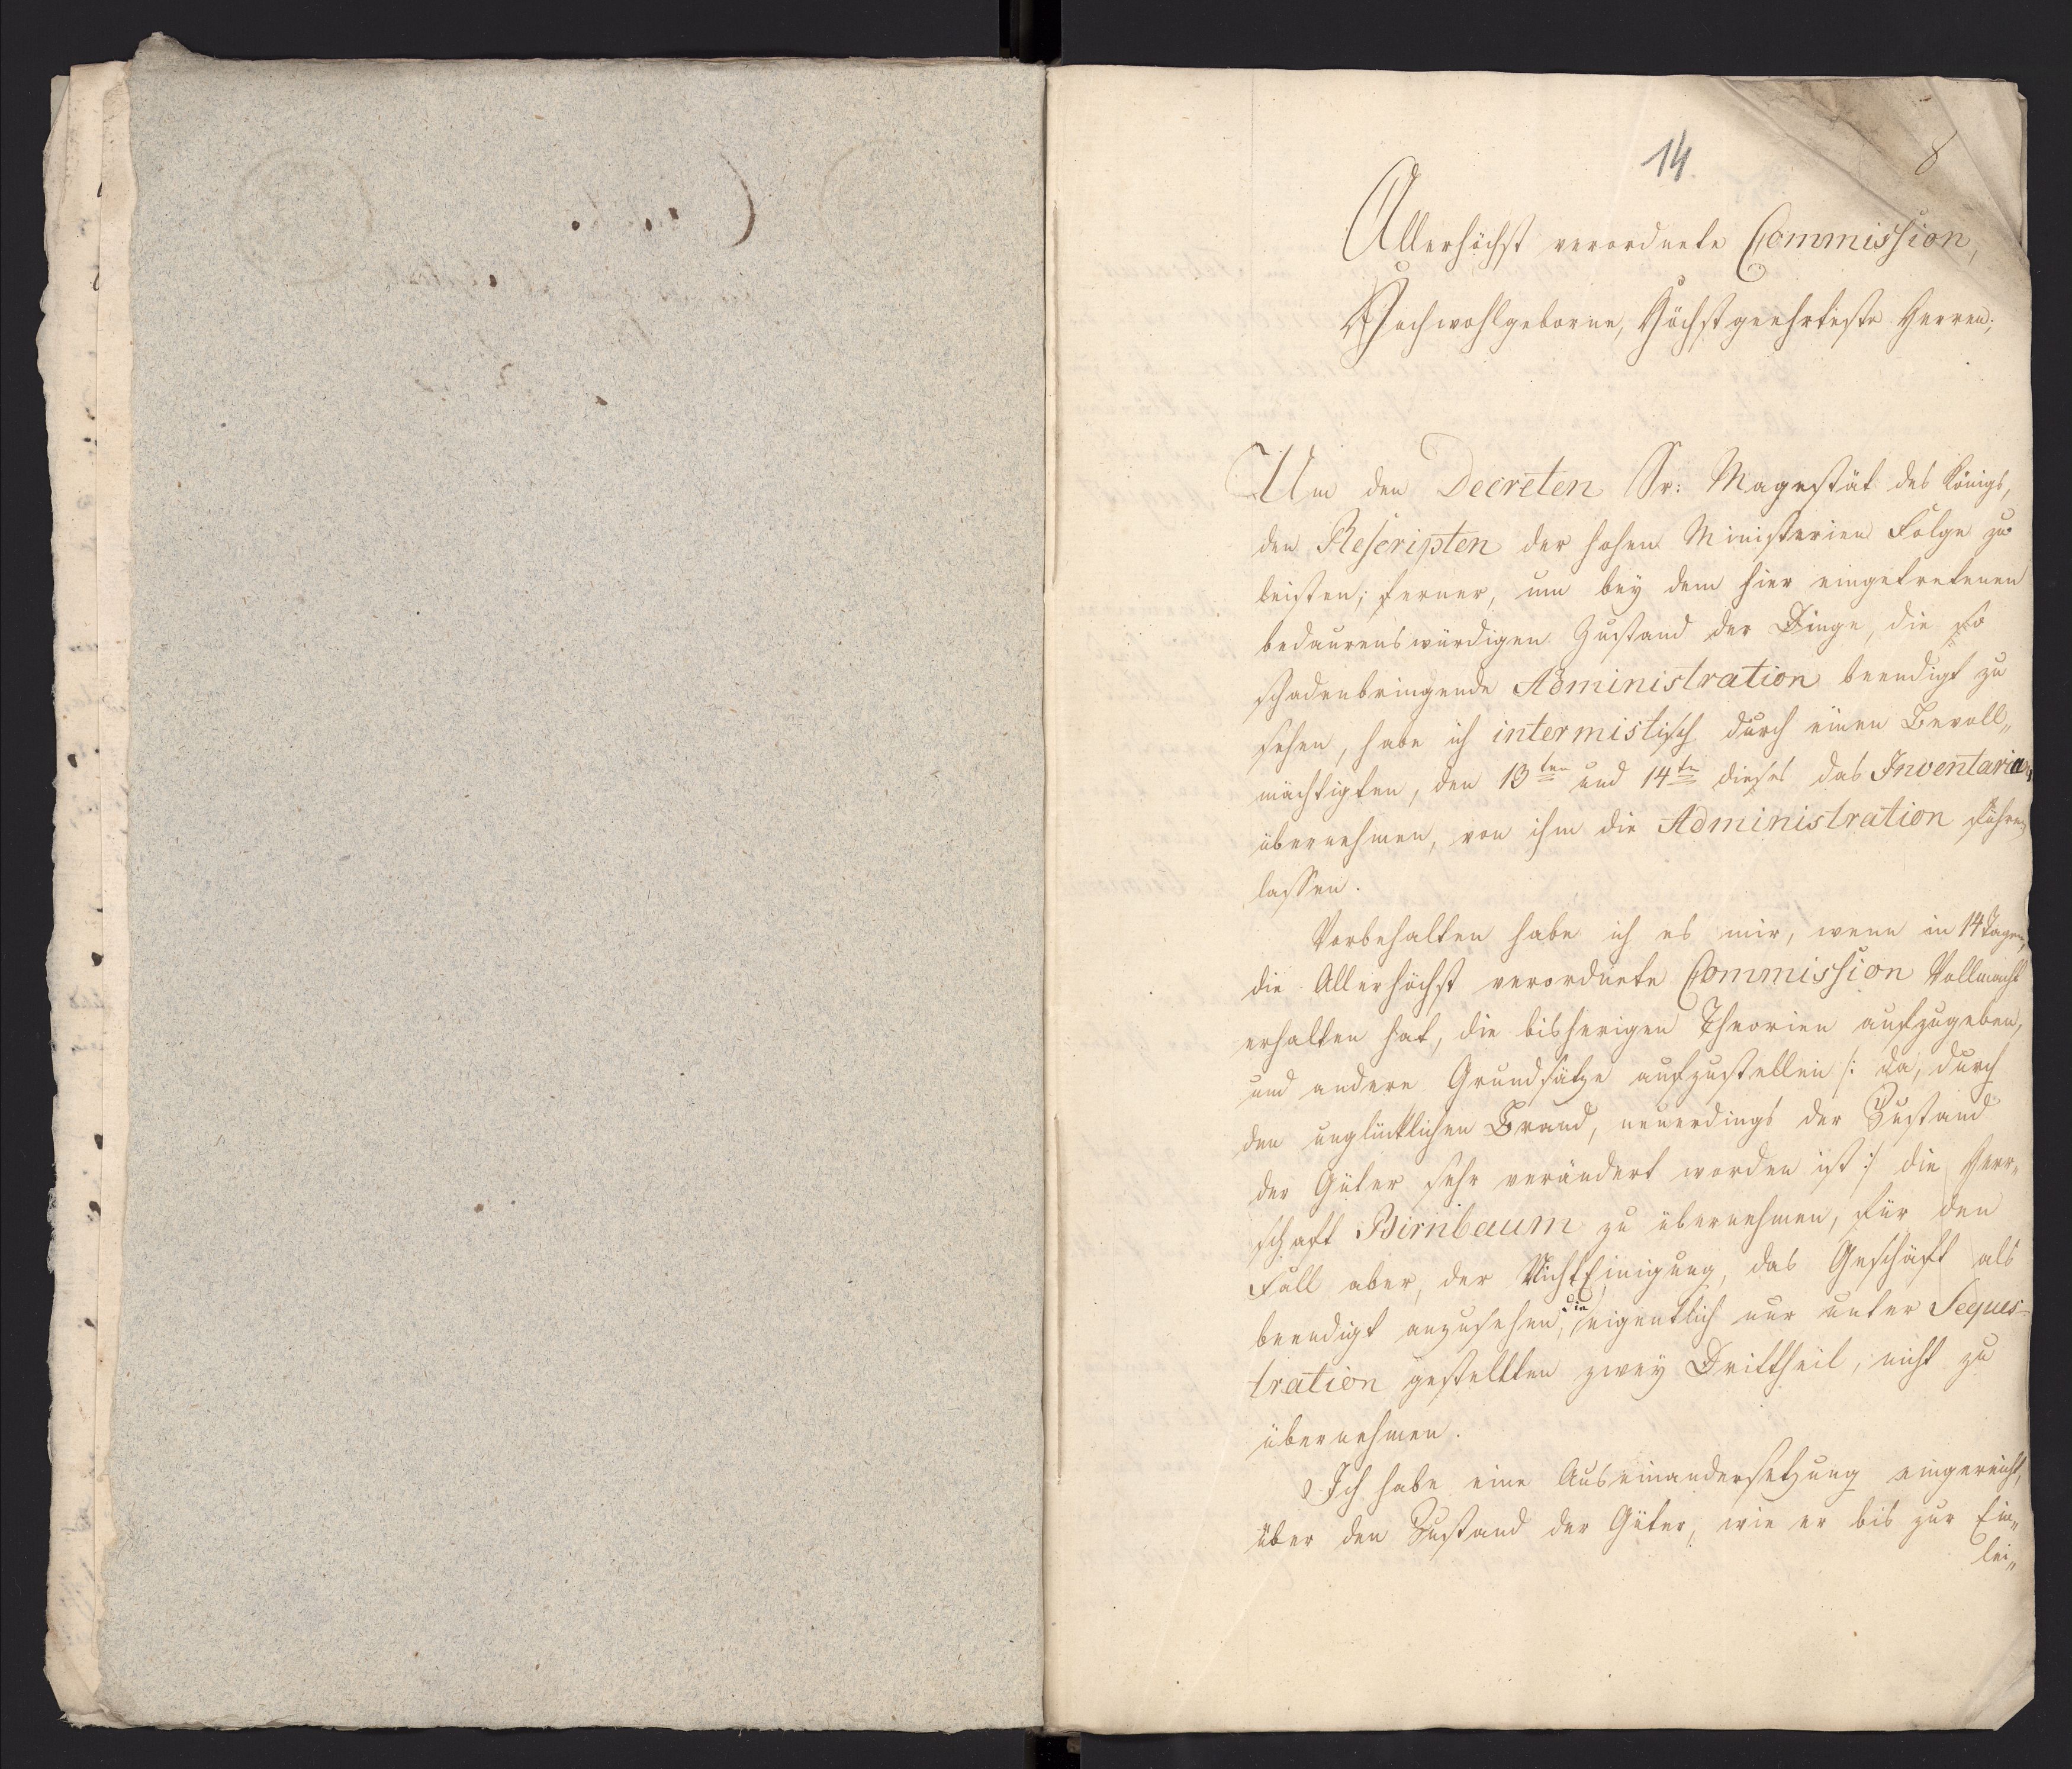 14
8
Allerhöchst verordnete Commission,
Hochwohlgeborne, Höchstgeehrteste Herren;
Um den Decreten Sr: Magestät des Königs,
den Rescripten der hohen Ministerien Folge zu
leisten; ferner, um bey dem hier eingetretenen
bedaurenswürdigen Zustand der Dinge, die so
schadenbringende Administration beendigt zu
sehen, habe ich intermistisch durch einen Bevoll„
mächtigten, den 13ten und 14ten dieses das Inventarium
übernehmen, von ihm die Administration führen
lassen.
Vorbehalten habe ich es mir, wenn in 14 Tagen,
die Allerhöchst verordnete Commission Vollmacht
erhalten hat, die bisherigen Theorien aufzugeben,
und andere Grundsätze aufzustellen /: da, durch
den unglücklichen Brand, neuerdings der Zustand
der Güter sehr verändert worden ist :/ die Herr„
schaft Birnbaum zu übernehmen, für den
Fall aber, der NichtEinigung, das Geschäft als
beendigt anzusehen, die eigentlich nur unter Seques-
tration gestellten zwey Drittheil, nicht zu
übernehmen.
Ich habe eine Auseinandersetzung eingereicht,
über den Zustand der Güter, wie er bis zur Ein„
lei„